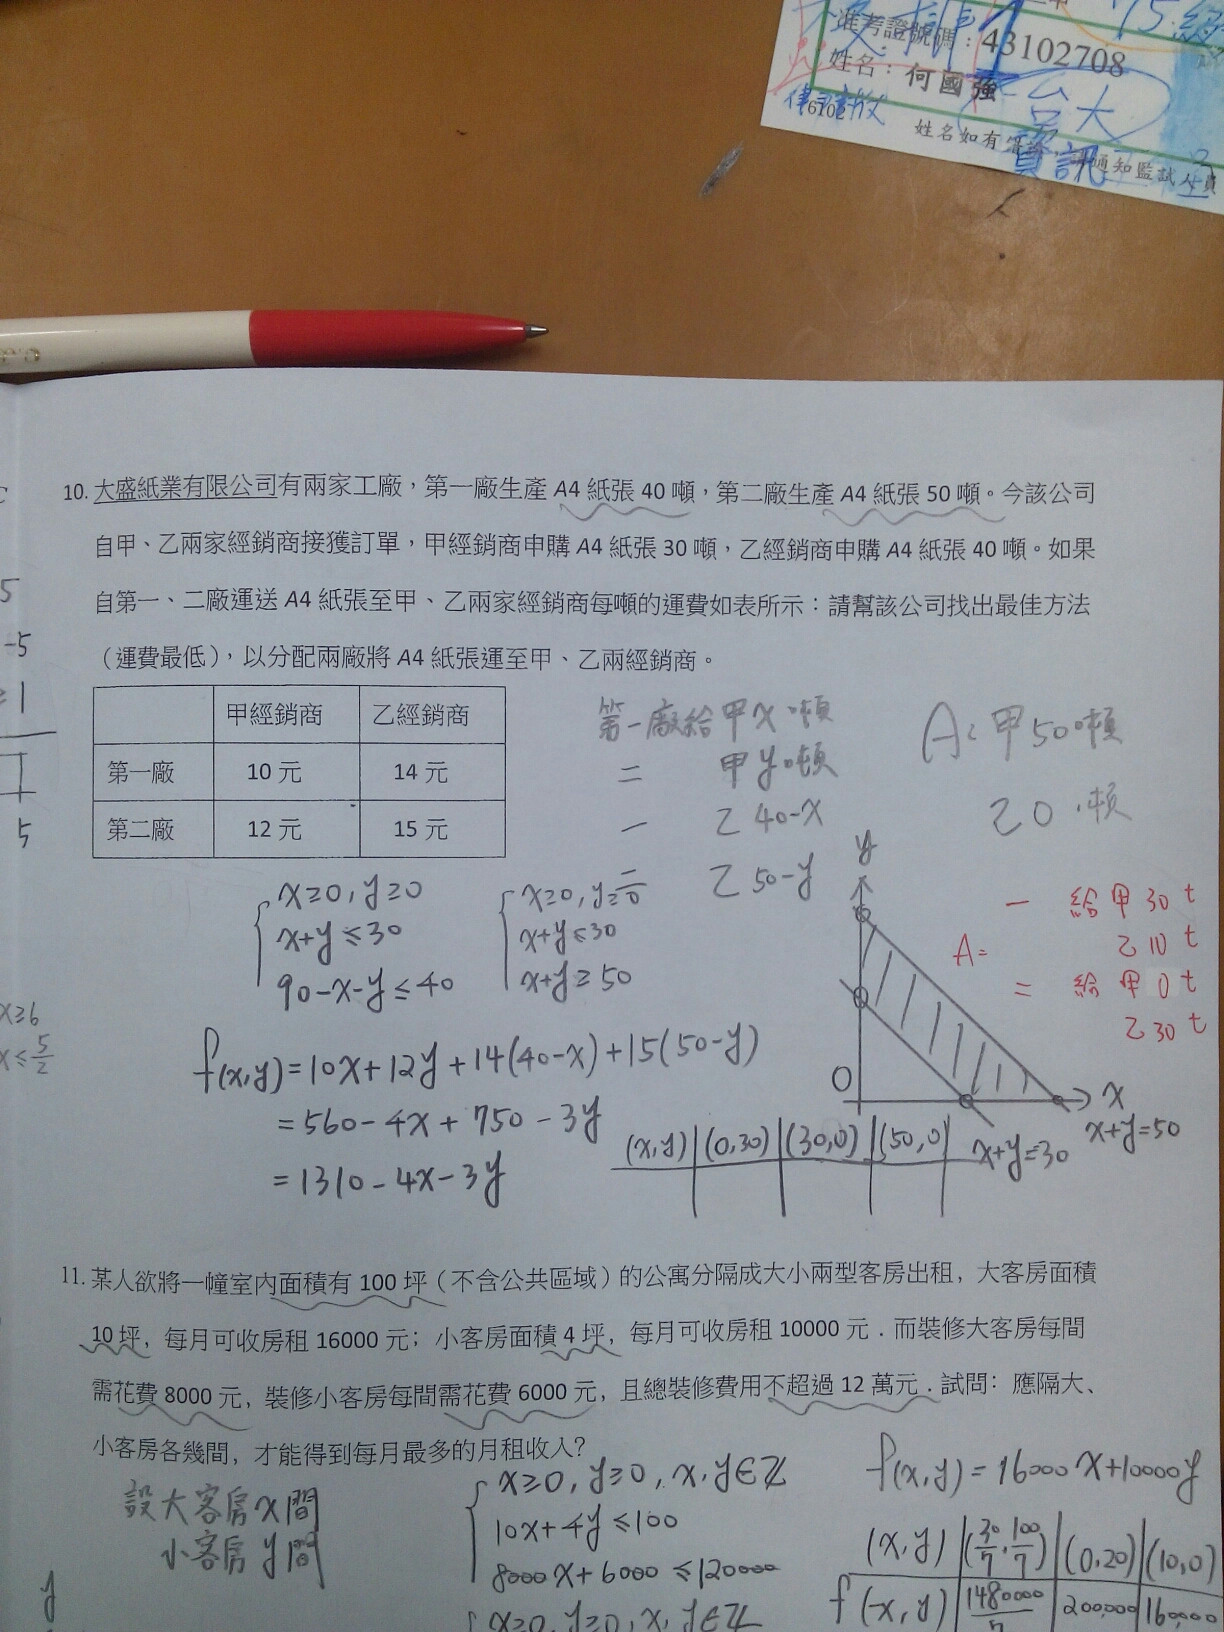 准考證號碼：43102708
姓名：何國強
台大
資訊
10. 大盛紙業有限公司有兩家工廠，第一廠生產 A4 紙張 40 噸，第二廠生產 A4 紙張 50 噸。今該公司
自甲、乙兩家經銷商接獲訂單，甲經銷商申購 A4 紙張 30 噸，乙經銷商申購 A4 紙張 40 噸。如果
自第一、二廠運送 A4 紙張至甲、乙兩家經銷商每噸的運費如表所示：請幫該公司找出最佳方法
（運費最低），以分配兩廠將 A4 紙張運至甲、乙兩經銷商。
甲經銷商 乙經銷商
第一廠 10 元 14 元
第二廠 12 元 15 元
第一廠給甲x噸
= 甲y噸
一 乙40-x
二 乙50-y
A: 甲50噸
乙0噸
x≥0, y≥0
x+y≤30
90-x-y≤40
x≥0, y≥0
x+y≤30
x+y≥50
A= 一 給甲30t
乙10t
= 給甲0t
乙30t
f(x,y)=10x+12y+14(40-x)+15(50-y)
=560-4x+750-3y
=1310-4x-3y
y
O
x
x+y=30
x+y=50
(x,y) (0,30) (30,0) (50,0)
11. 某人欲將一幢室內面積有 100 坪（不含公共區域）的公寓分隔成大小兩型客房出租，大客房面積
10 坪，每月可收房租 16000 元；小客房面積 4 坪，每月可收房租 10000 元．而裝修大客房每間
需花費 8000 元，裝修小客房每間需花費 6000 元，且總裝修費用不超過 12 萬元．試問：應隔大、
小客房各幾間，才能得到每月最多的月租收入？
設大客房x間
小客房y間
x≥0, y≥0, x,y∈Z
10x+4y≤100
8000x+6000≤120000
x≥0, y≥0, x,y∈Z
f(x,y)=16000x+10000y
(x,y) (30/7,100/7) (0,20) (10,0)
f(x,y) 1480000/7 200000 160000
y
5
-5
5
x≥6
x≤5/2